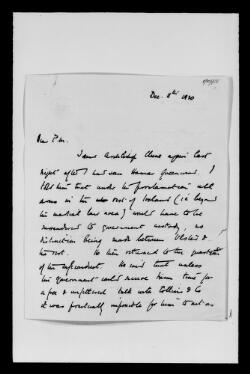 Dec. 8th 1920
Dear P.M.
I saw Archbishop Clune again last
night after I had seen Hamar Greenwood. I
told him that under the proclamation all
arms in the rest of Ireland (ie beyond
the martial law area) would have to be
surrendered to government custody, no
distinction being made between Ulster &
the rest. He then returned to the question
of the safe conduct. He said that unless
the government could secure him time for
a free & unfettered talk with Collins & Co
it was practically impossible for him to act as